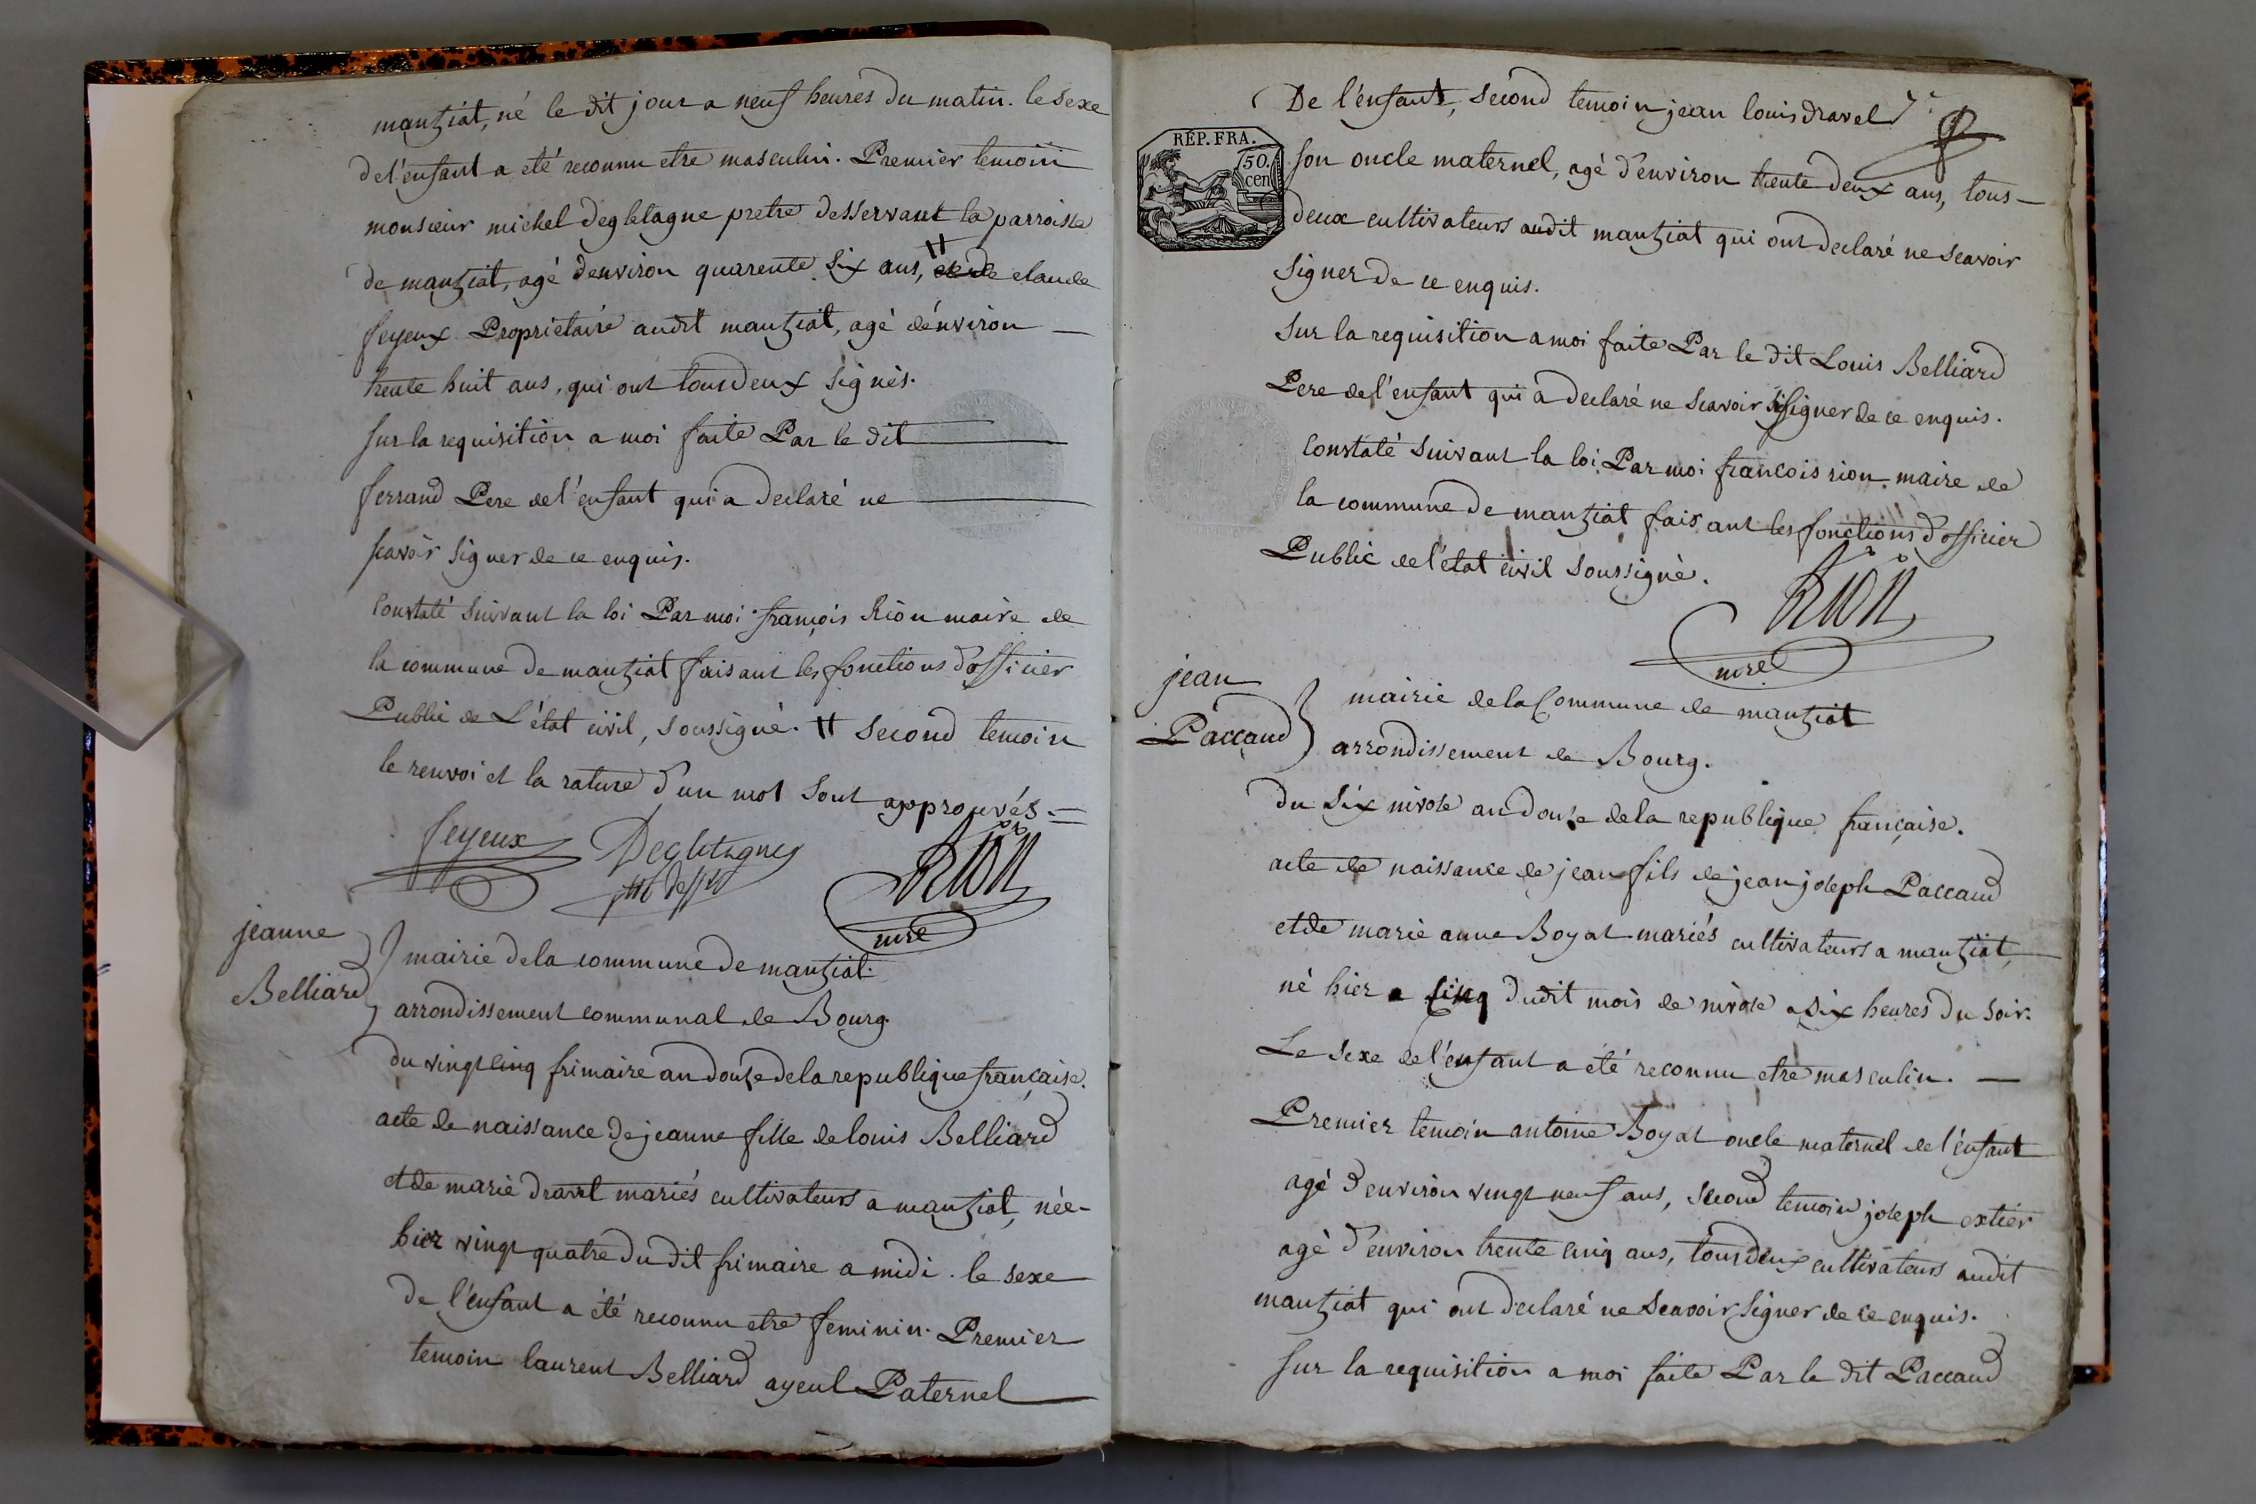 mantziat, né le dit jour a neuf heures du matin. le sexe
de l'enfant a été reconnu etre masculin. Premier temoin
monsieur michel degletagne pretre desservant la parroisse
de mantziat, agé d'environ quarente six ans, # et de claude
feyeux Proprietaire audit mantziat, agé d'environ —
trente huit ans, qui ont tous deux signés.
sur la requisition a moi faite Par le dit
ferrand Pere de l'enfant qui a declaré ne
scavoir signer de ce enquis.
Constaté suivant la loi Par moi françois Rion maire de
la commune de mantziat faisant les fonctions d'officier
Public de L'état civil, soussigné. # second temoin
le renvoi et la rature d'un mot sont approuvés =
feyeux Degletagne Rion
mre
jeanne
Belliard
mairie de la commune de mantziat.
arrondissement communal de Bourg.
du vingt cinq frimaire an douze de la republique française.
acte de naissance de jeanne fille de louis Belliard
et de marie dravet mariés cultivateurs a mantziat, née-
hier vingt quatre du dit frimaire a midi. le sexe
de l'enfant a été reconnu etre feminin. Premier
temoin laurent Belliard ayeul Paternel
De l'enfant, second temoin jean louis dravel
RÉP. FRA.
50.
cen
son oncle maternel, agé d'environ trente deux ans, tous —
deux cultivateurs audit mantziat qui ont declaré ne scavoir
signer de ce enquis.
sur la requisition a moi faite Par le dit Louis Belliard
Pere de l'enfant qui a declaré ne scavoir signer de ce enquis.
Constaté suivant la loi Par moi francois rion maire de
la commune de mantziat faisant les fonctions d'officier
Public de l'état civil soussigné.
Rion
mre
jean
Paccaud
mairie de la Commune de mantziat
arrondissement de Bourg.
du six nivose an douze de la republique française.
acte de naissance de jean fils de jean joseph Paccaud
et de marie anne Boyat mariés cultivateurs a mantziat,
né hier a cinq dudit mois de nivose a six heures du soir.
Le sexe de l'enfant a été reconnu etre masculin. —
Premier temoin antoine Boyat oncle maternel de l'enfant
agé d'environ vingt neuf ans, second temoin joseph extier
agé d'environ trente cinq ans, tous deux cultivateurs audit
mantziat qui ont declaré ne scavoir signer de ce enquis.
sur la requisition a moi faite Par le dit Paccaud